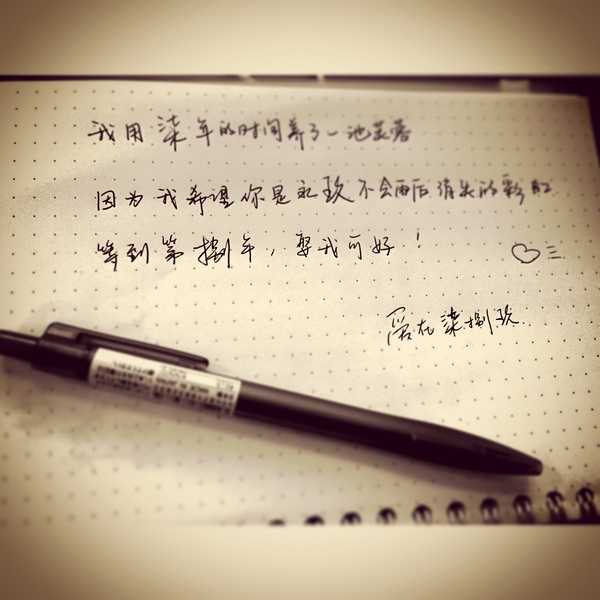 我用柒年的时间养了一池芙蓉
因为我希望你是永玖不会雨后消失的彩虹
等到第捌年，娶我可好！
爱在柒捌玖